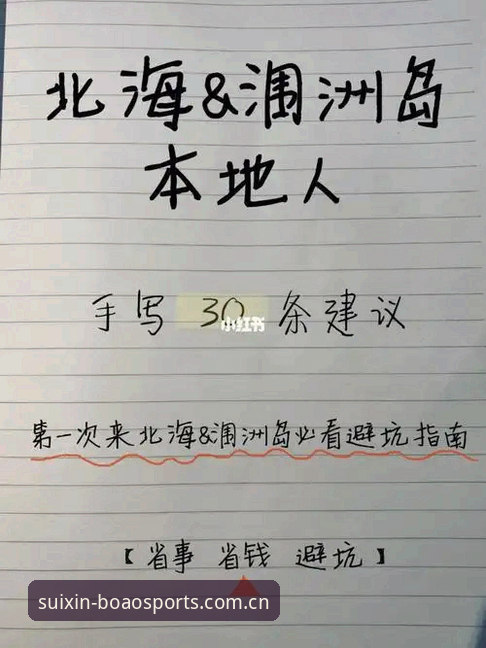 北海&涠洲岛
本地人
手写 30 条建议
小红书
第一次来北海&涠洲岛必看避坑指南
【省事 省钱 避坑】
suixin-boaosports.com.cn